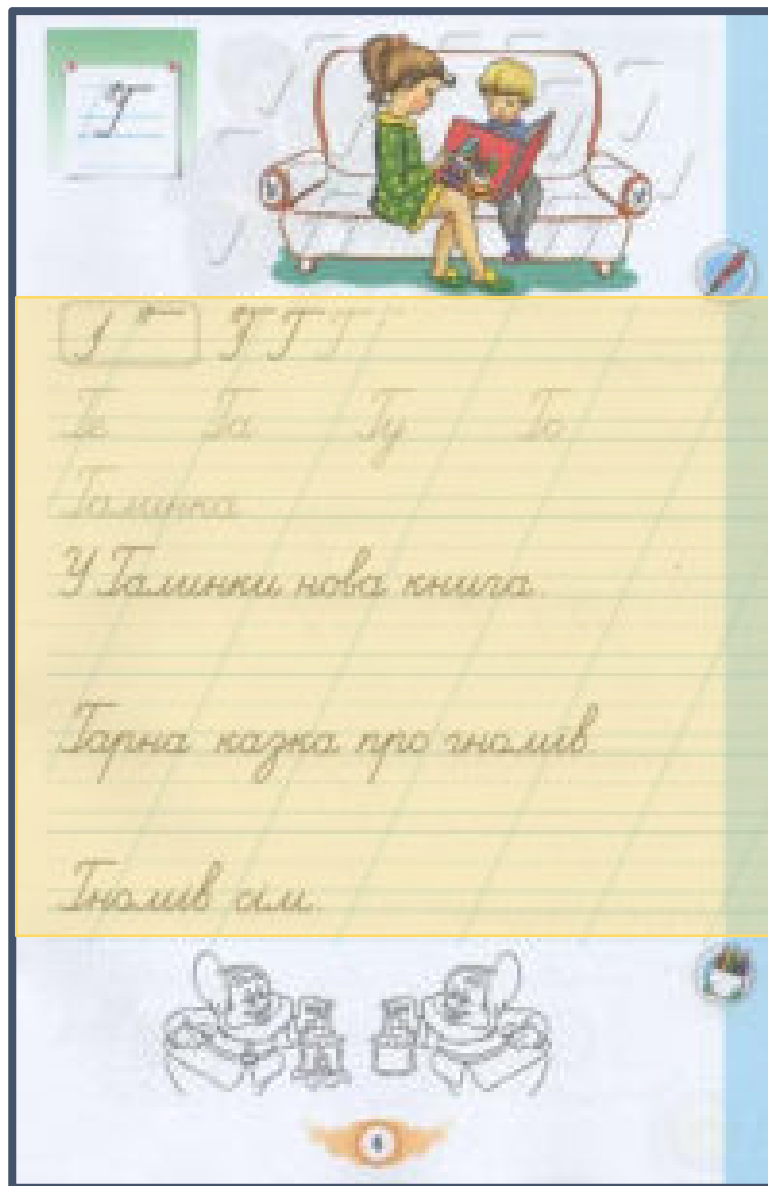 Г
Г Г Г
Ге Га Гу Го
Галинка
У Галинки нова книга.
Гарна казка про гномів.
Гномів сім.